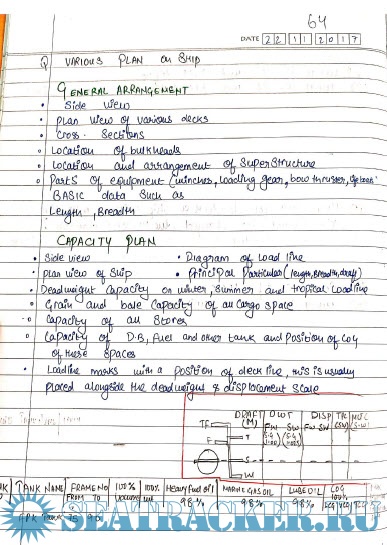 64
DATE 22 11 2017
Q VARIOUS PLAN ON SHIP
GENERAL ARRANGEMENT
• Side view
• Plan view of various decks
• Cross- Sections
• Location of bulkheads
• Location and arrangement of Superstructure
• Parts of equipment (winches, loading gear, bow thruster,
BASIC data Such as
Length, Breadth
CAPACITY PLAN
• Side view • Diagram of Load line
• plan view of Ship • Principal Particular (length, Breadth, draft)
• Deadweight Capacity on winter, Summer and tropical Loadline
• Grain and bale Capacity of all Cargo space
• Capacity of all Stores
• Capacity of D.B, fuel and other tank and Position of COG
of these Spaces
• Loadline marks with a position of deck line, this is usually
placed alongside the deadweight & displacement Scale
DRAFT DWT DISP TPC MCTC
(M) FW SW FW SW (SW) (S.W)
TF
F T
S
W
TANK NAME FRAME NO 100% 100% Heavy fuel oil MARINE GAS OIL LUBE OIL COG
FROM TO Volume 98% 98% 98% 100%
LCG VCG TCG
75 90
SEATRACKER.RU